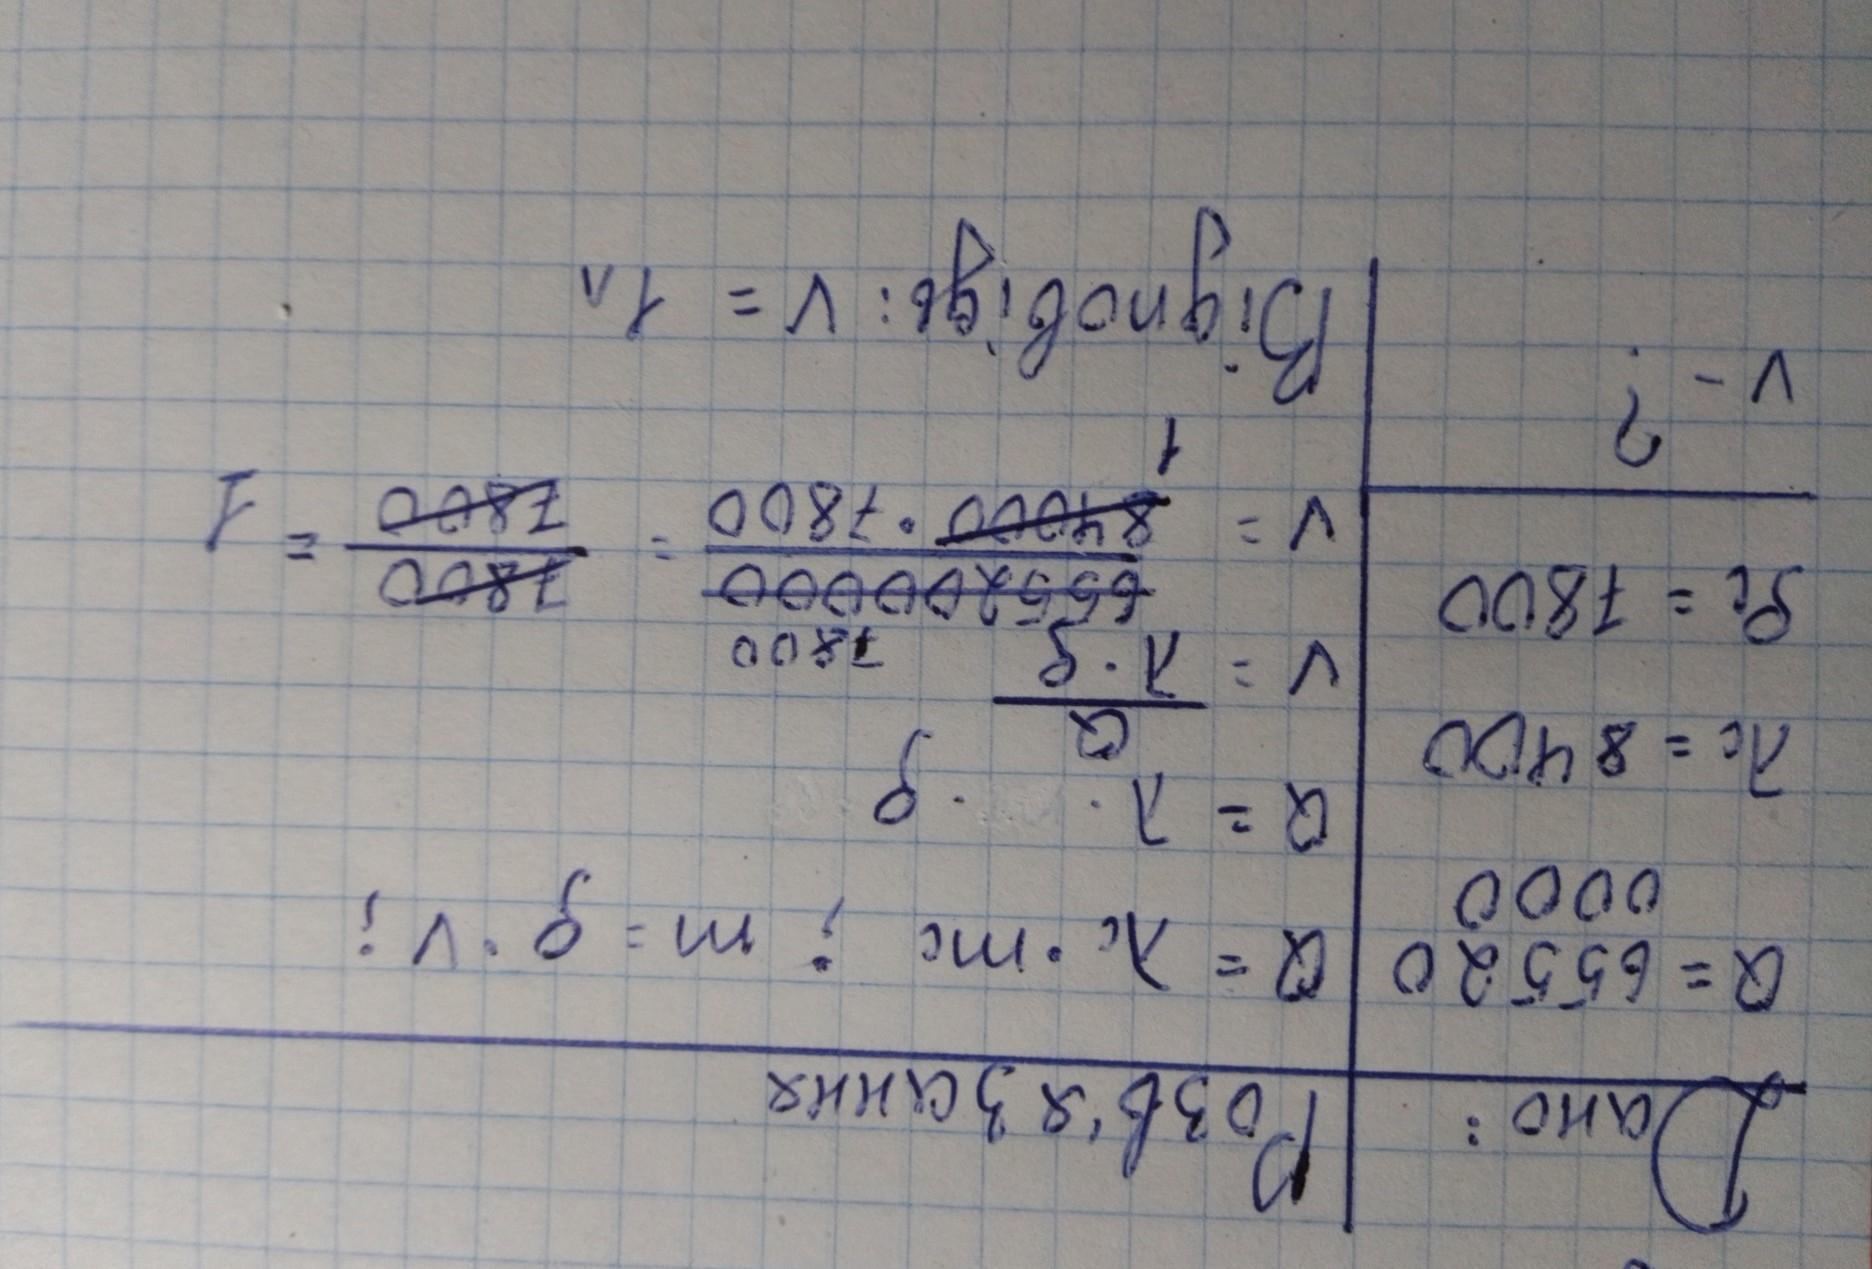 Дано:
Q = 65520
0000
λc = 8400
ρc = 7800
V - ?
Розв'язання
Q = λc · mc ; m = ρ · V ;
Q = λ · · ρ
V = Q / λ · ρ
7800
V = 655200000 / 84000 · 7800 = 7800 / 7800 = 1
1
Відповідь: V = 1л